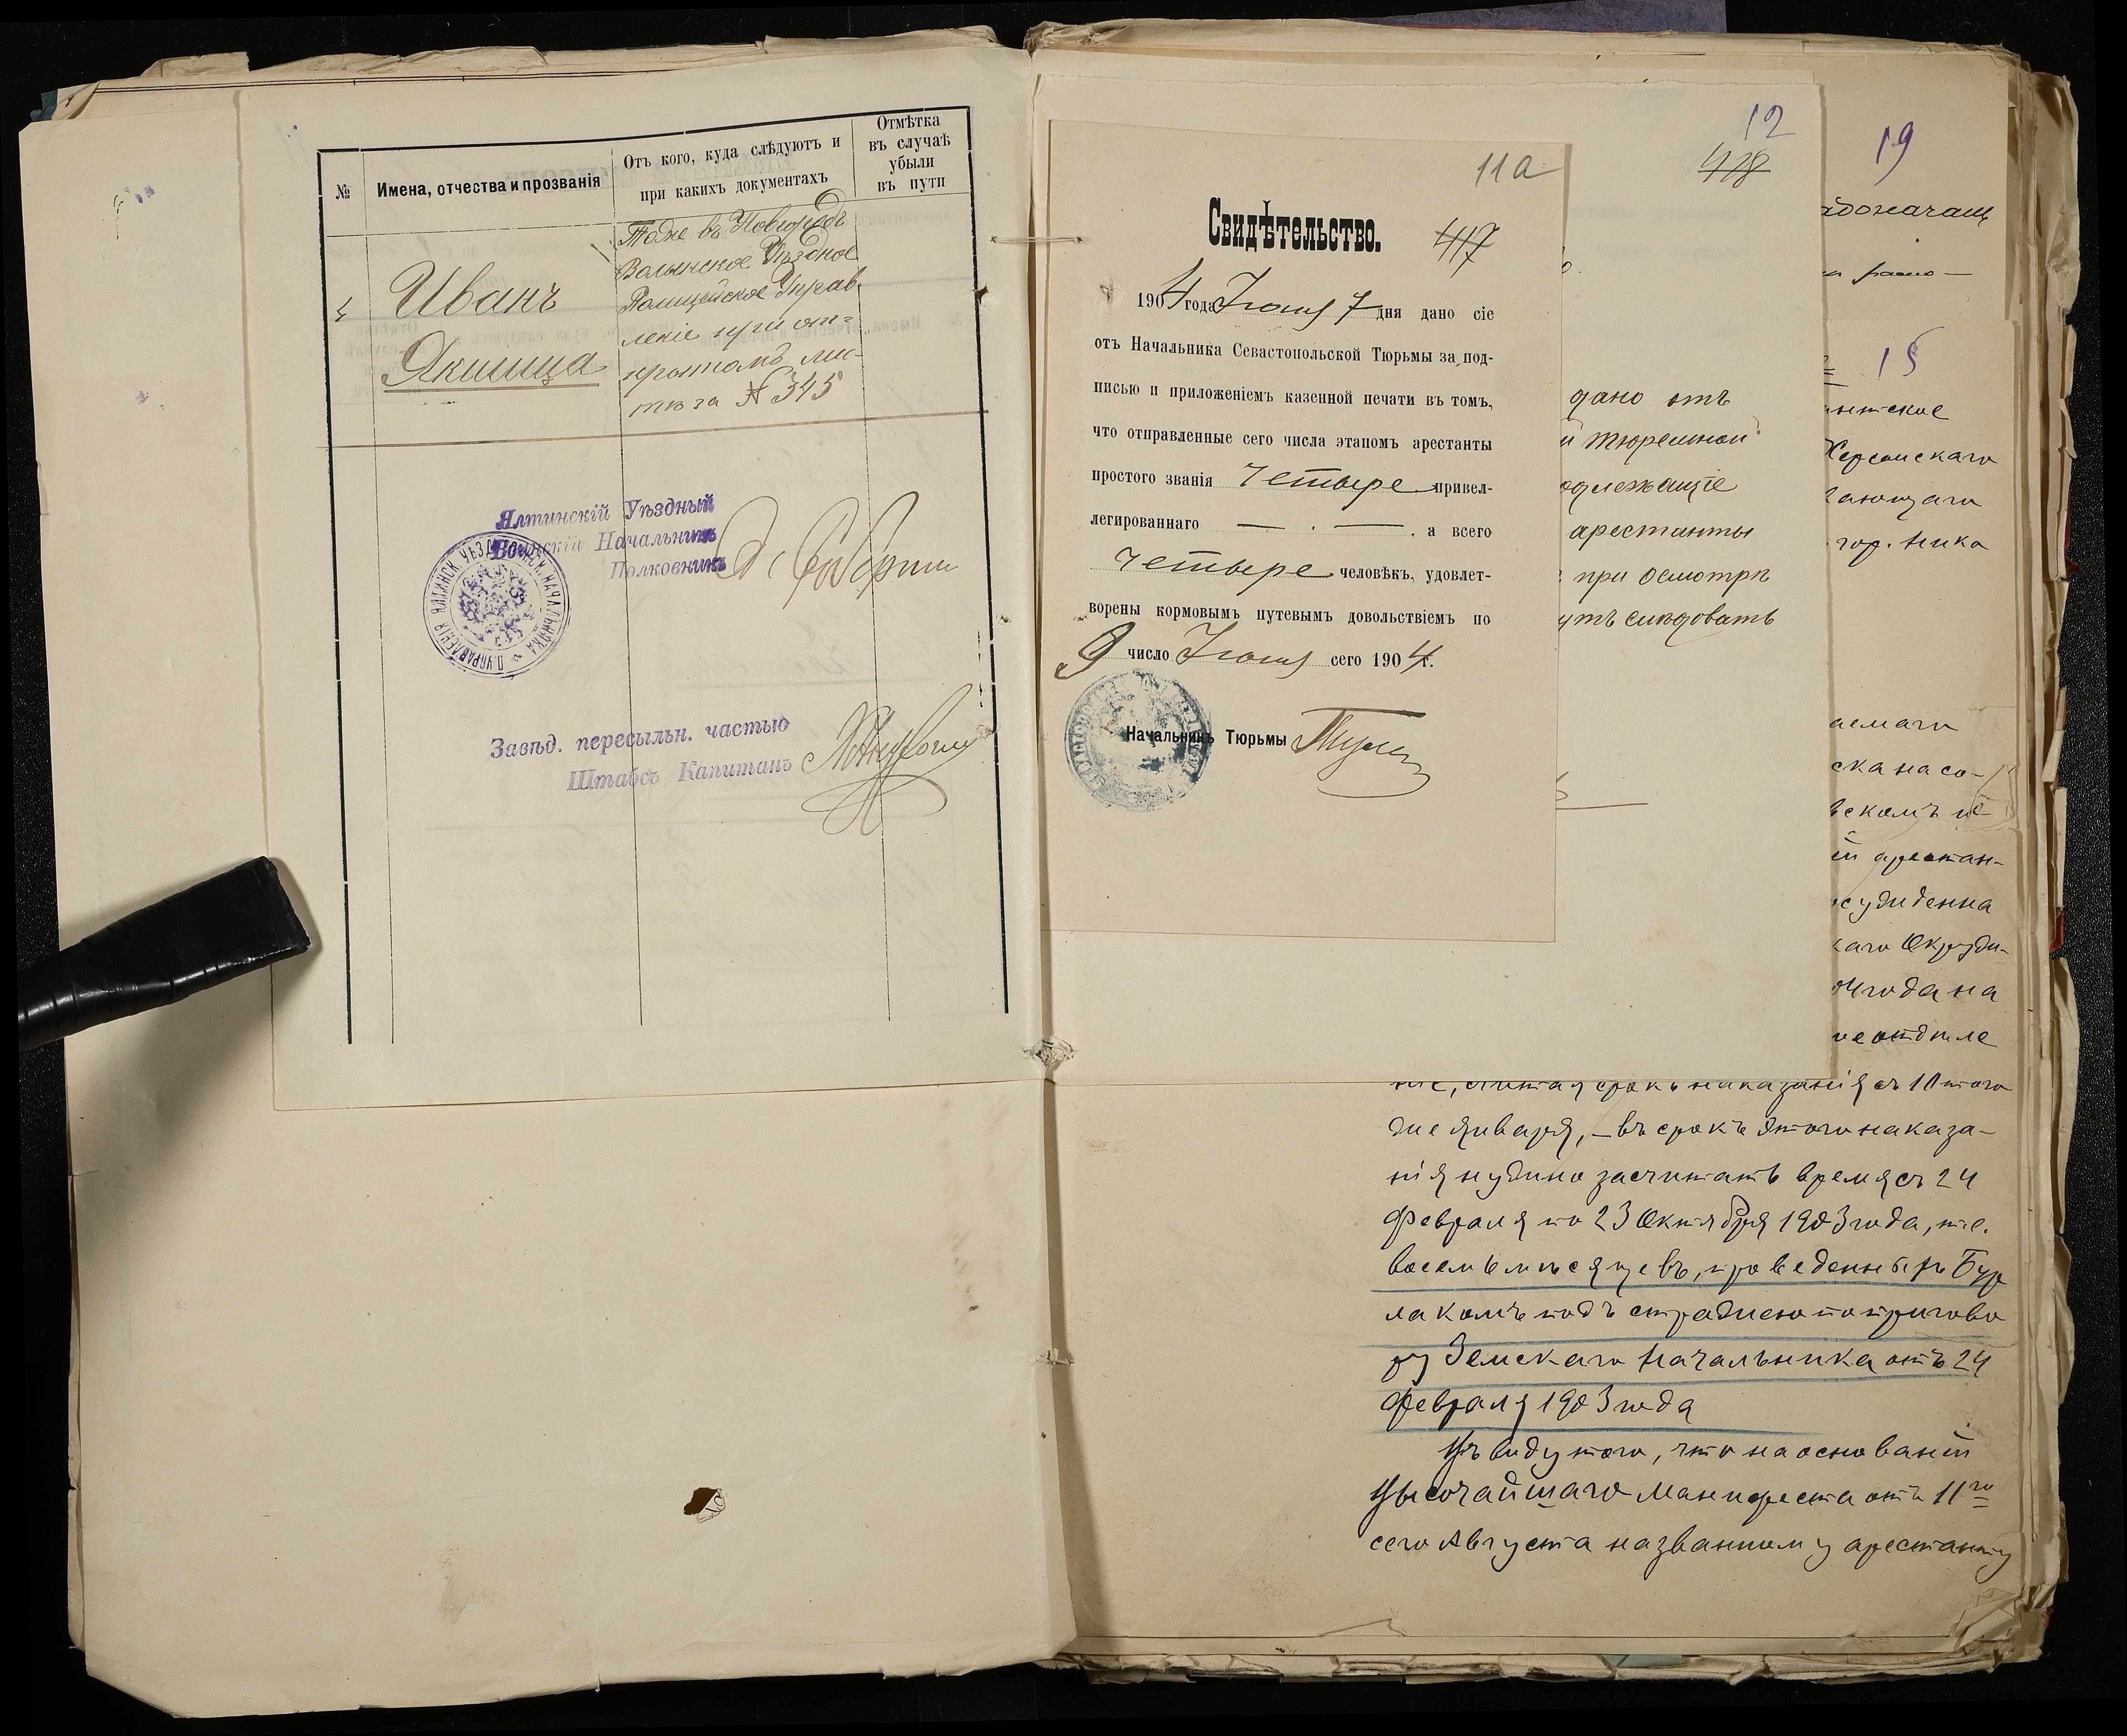 №
Имена, отчества и прозванія
Отъ кого, куда слѣдуютъ и
при какихъ документахъ
Отмѣтка
въ случаѣ
убыли
въ пути
Иванъ
Якшица
Тоже въ Новоградъ
Волынское Уѣздное
Полицейское Управ-
леніе при от-
крытомъ лис-
тѣ за № 345
Ялтинскій Уѣздный
Воинскій Начальникъ
Полковникъ
Завѣд. пересыльн. частью
Штабсъ Капитанъ
11а
Свидѣтельство.
417
1904 года Іюня 7 дня дано сіе
отъ Начальника Севастопольской Тюрьмы за под-
писью и приложеніемъ казенной печати въ томъ,
что отправленные сего числа этапомъ арестанты
простого званія четыре привел-
легированнаго — . — , а всего
четыре человѣкъ, удовлет-
ворены кормовымъ путевымъ довольствіемъ по
9 число Іюня сего 1904 г.
Начальникъ Тюрьмы
12
418
дано отъ
й тюремной
одлежащіе
арестанты
при осмотрѣ
утъ слѣдовать
19
15
Херсонскаго
гор. Нико
аемаго
ска на со-
ій арестан-
осужденна
каго Окруж-
04 года на
ніе, считая срокъ наказанія съ 10 того
же января, — въ срокъ этого наказа-
нія нужно засчитать время съ 24
Февраля по 23 Октября 1903 года, т.е.
восемь мѣсяцевъ, проведенныхъ Бур
лакомъ подъ стражею по пригово
ру Земскаго Начальника отъ 24
Февраля 1903 года
Въ виду того, что на основаніи
Высочайшаго Манифеста отъ 11го
сего Августа названному арестанту